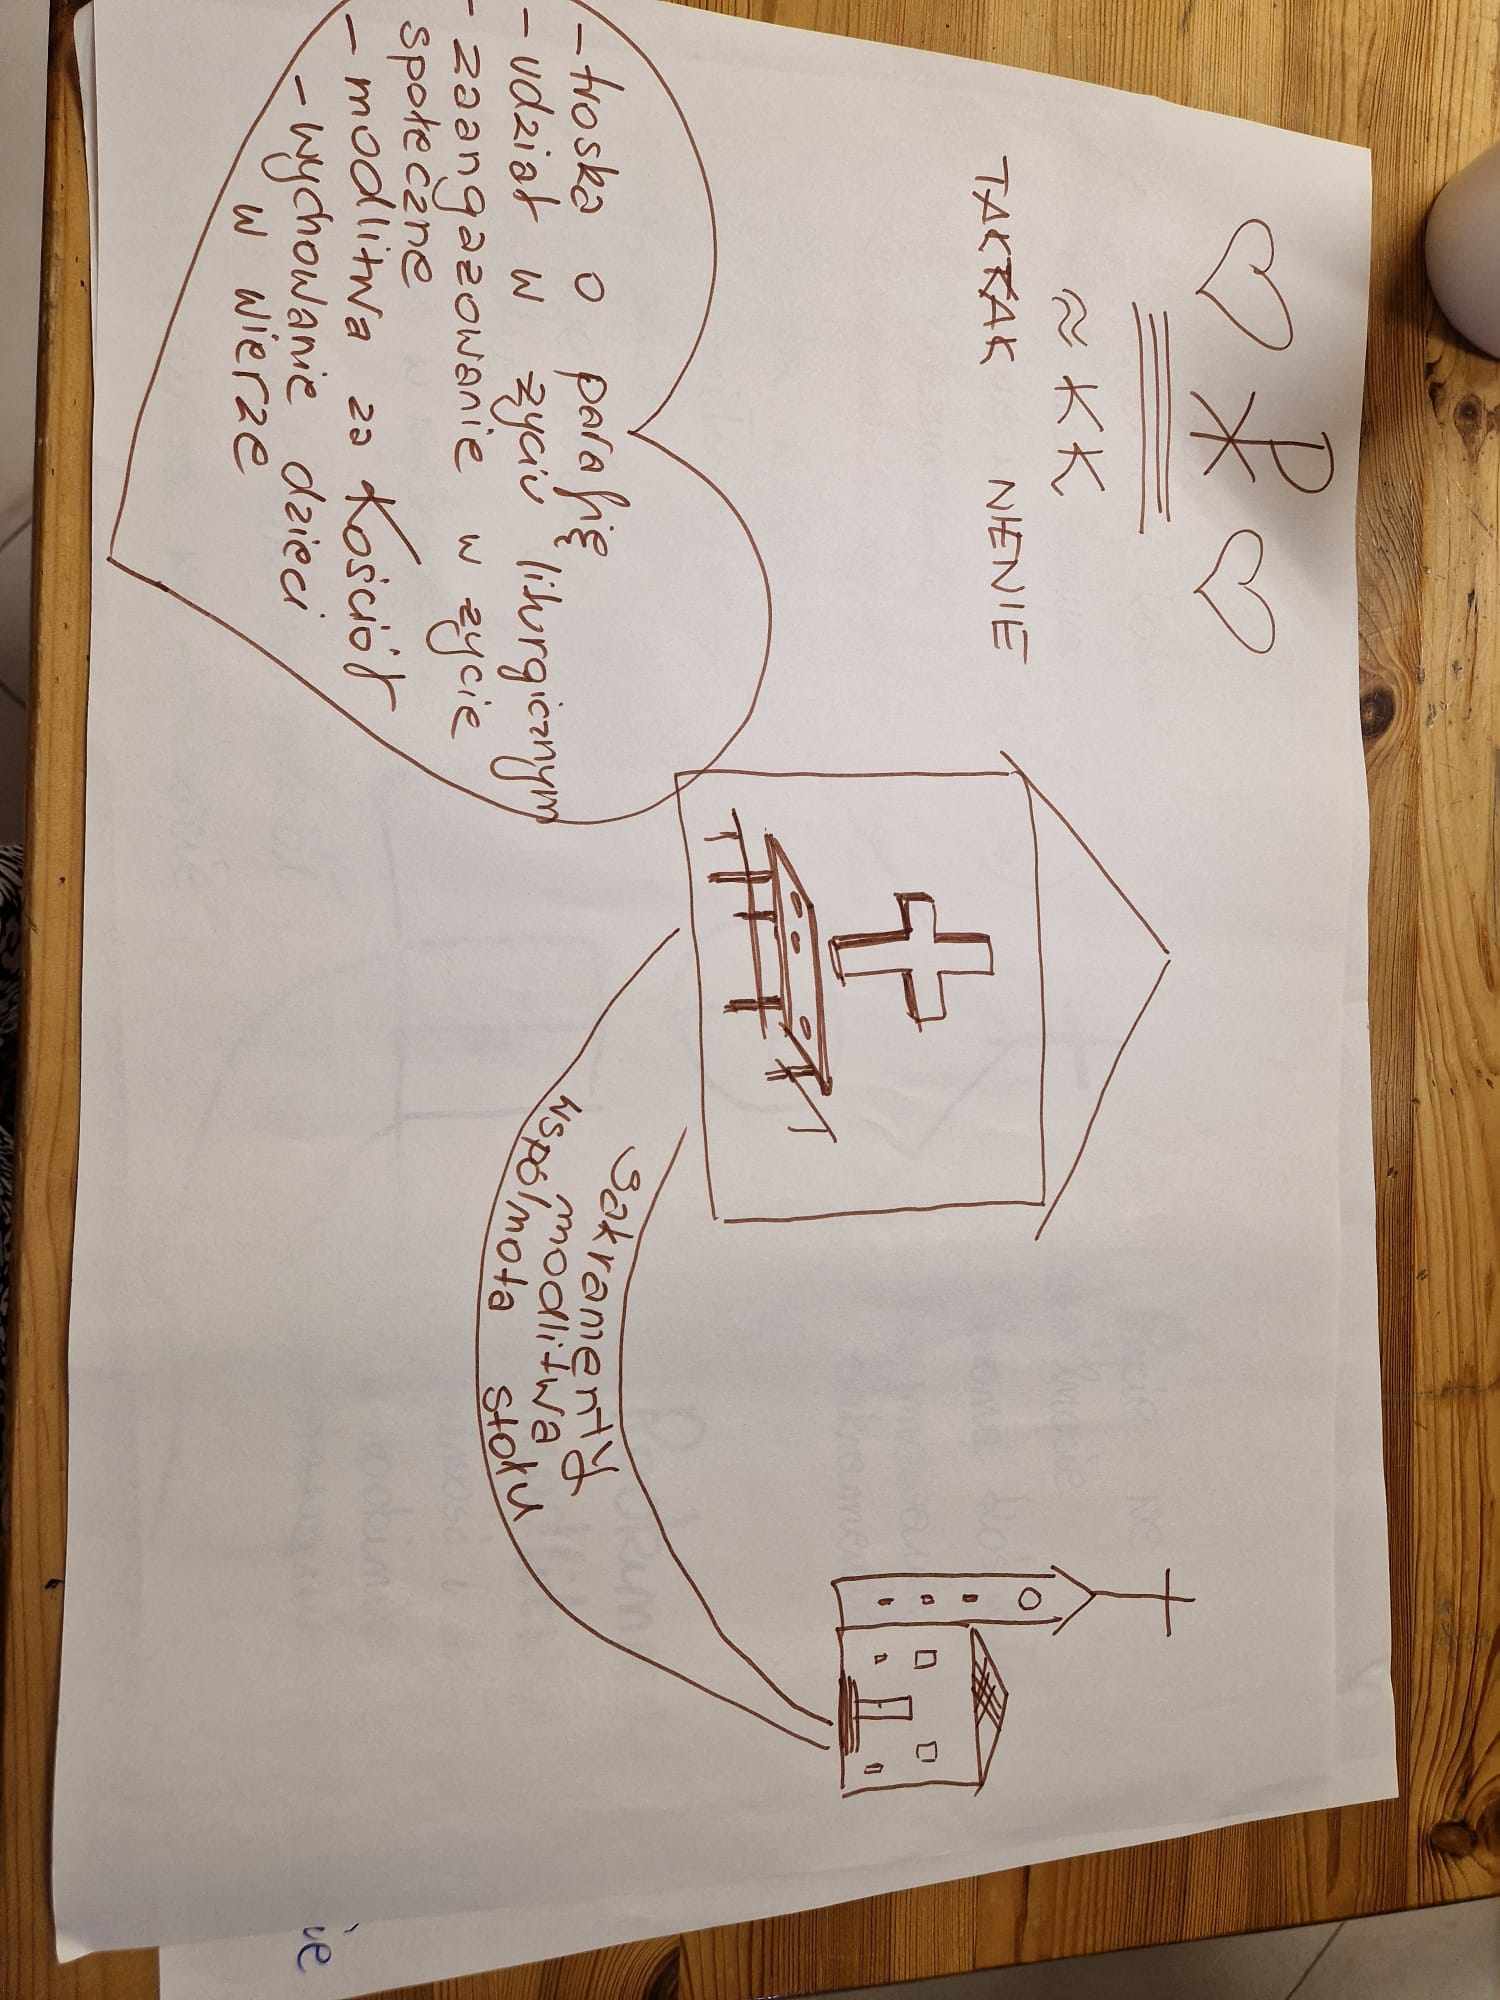 ≈ KK
TAKTAK NIENIE
- troska o parafię
- udział w życiu liturgicznym
- zaangażowanie w życie
społeczne
- modlitwa za Kościół
- wychowanie dzieci
w wierze
sakramenty
modlitwa
wspólnota stołu